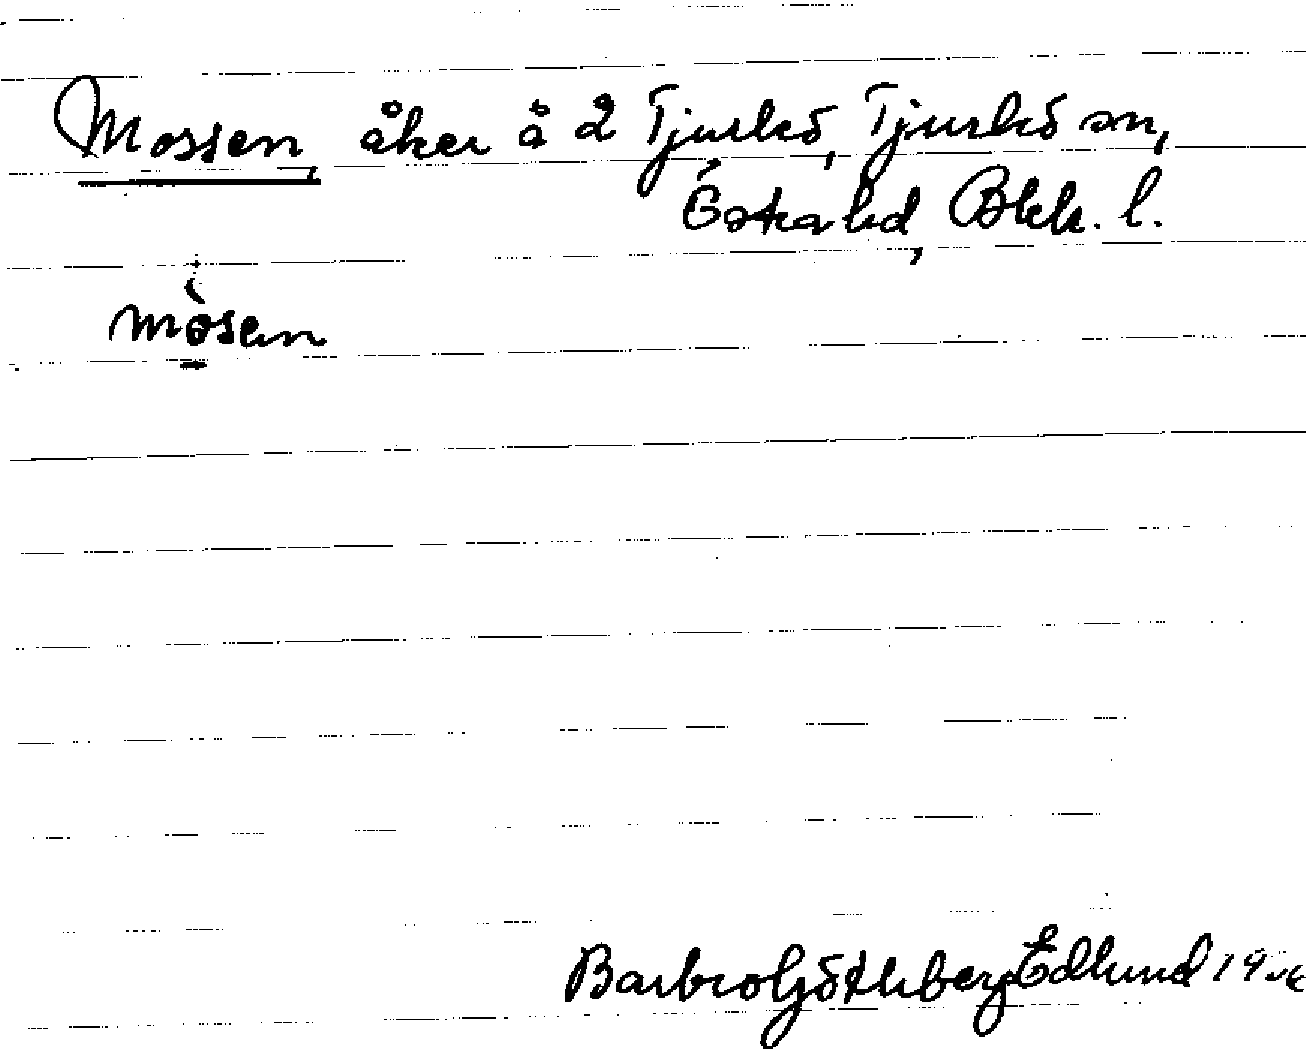 Mossen, åker å 2 Tjurkö, Tjurkö sn,
Östra hd, Blek. l.
mòsen
Barbro Götheberg Edlund 19